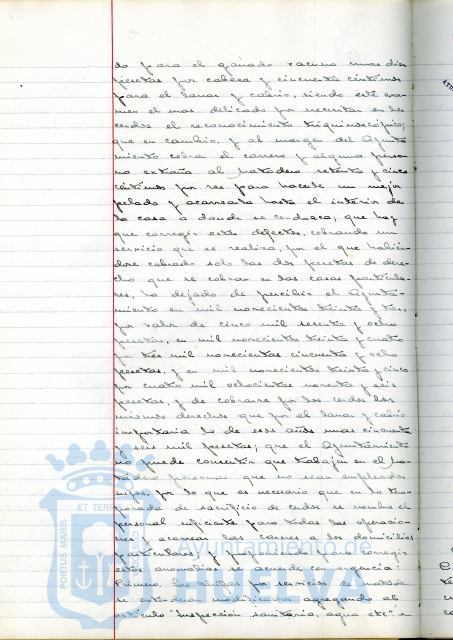 do para el ganado vacuno unas dos
pesetas por cabeza y cincuenta céntimos
para el lanar y cabrío, siendo este exa-
men el mas delicado por necesitar en los
cerdos el reconocimiento triquinoscópico;
que en cambio, y al margen del Ayunta-
miento cobran el carrero y alguna perso-
na extraña al matadero setenta y cinco
céntimos por res para hacerle un mejor
pelado y acarrearla hasta el interior de
la casa a donde se conduzca, que hay
que corregir estos defectos, cobrando un
servicio que se realiza, por el que habién-
dose cobrado solo las dos pesetas de dere-
cho que se cobran en las casas particula-
res, ha dejado de percibir el Ayunta-
miento en mil novecientos treinta y tres,
por valor de cinco mil sesenta y ocho
pesetas, en mil novecientos treinta y cuatro
por tres mil novecientas cincuenta y ocho
pesetas, y en mil novecientos treinta y cinco
por cuatro mil ochocientas noventa y seis
pesetas, y de cobrarse por los cerdos los
mismos derechos que por el lanar y cabrío
importaria lo de esos años unas cincuenta
y seis mil pesetas; que el Ayuntamiento
no puede consentir que trabajen en el Ma-
tadero personas que no sean empleados
suyos, por lo que es necesario que en la tem-
porada de sacrificio de cerdos se nombre el
personal suficiente para todas las operacio-
nes y acarreo de las carnes a los domicilios
particulares, y proponiendo para corregir
estas anomalias se acuerde con urgencia:
Primero. La tarifa por servicios de matadero
se entenderá modificada agregando al
artículo "Inspección sanitaria, agua etc" en
ET TERRE
PORTUS MARIS
Ayuntamiento de
HUELVA